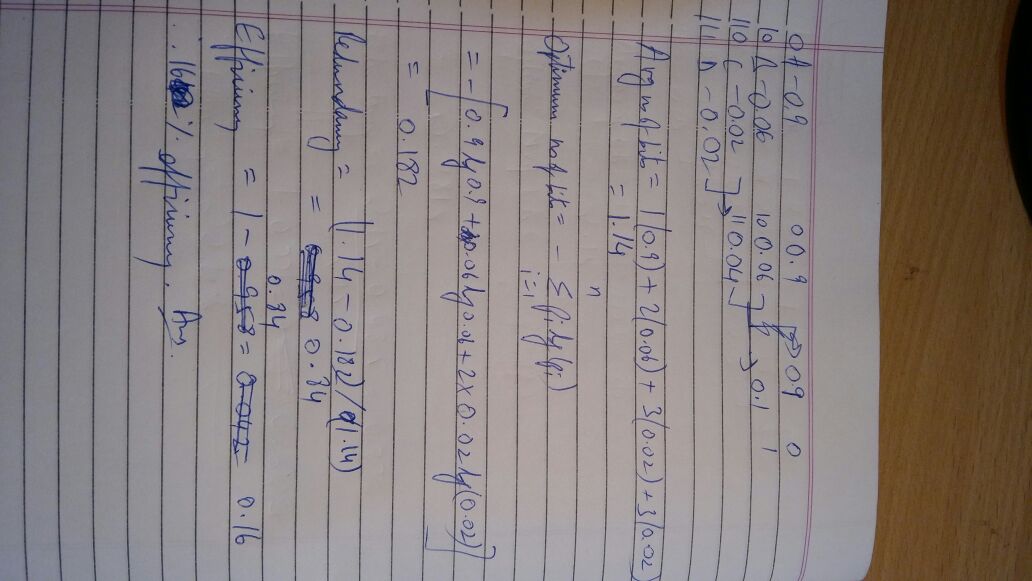 0 A - 0.9 0 0.9 → 0.9 0
10 B - 0.06 10 0.06 → 0.1 1
110 C - 0.02 → 11 0.04
111 D - 0.02
Avg no of bits = 1(0.9) + 2(0.06) + 3(0.02) + 3(0.02)
= 1.14
Optimum no of bits = - n Σ i=1 pi lg(pi)
= - [0.9 lg 0.9 + 0.06 lg 0.06 + 2 x 0.02 lg(0.02)]
= 0.182
Redundancy = (1.14 - 0.182)/(1.14)
= 0.84
0.84
Efficiency = 1 - 0.958 = 0.042 0.16
∴ 16 % efficiency. Ans.